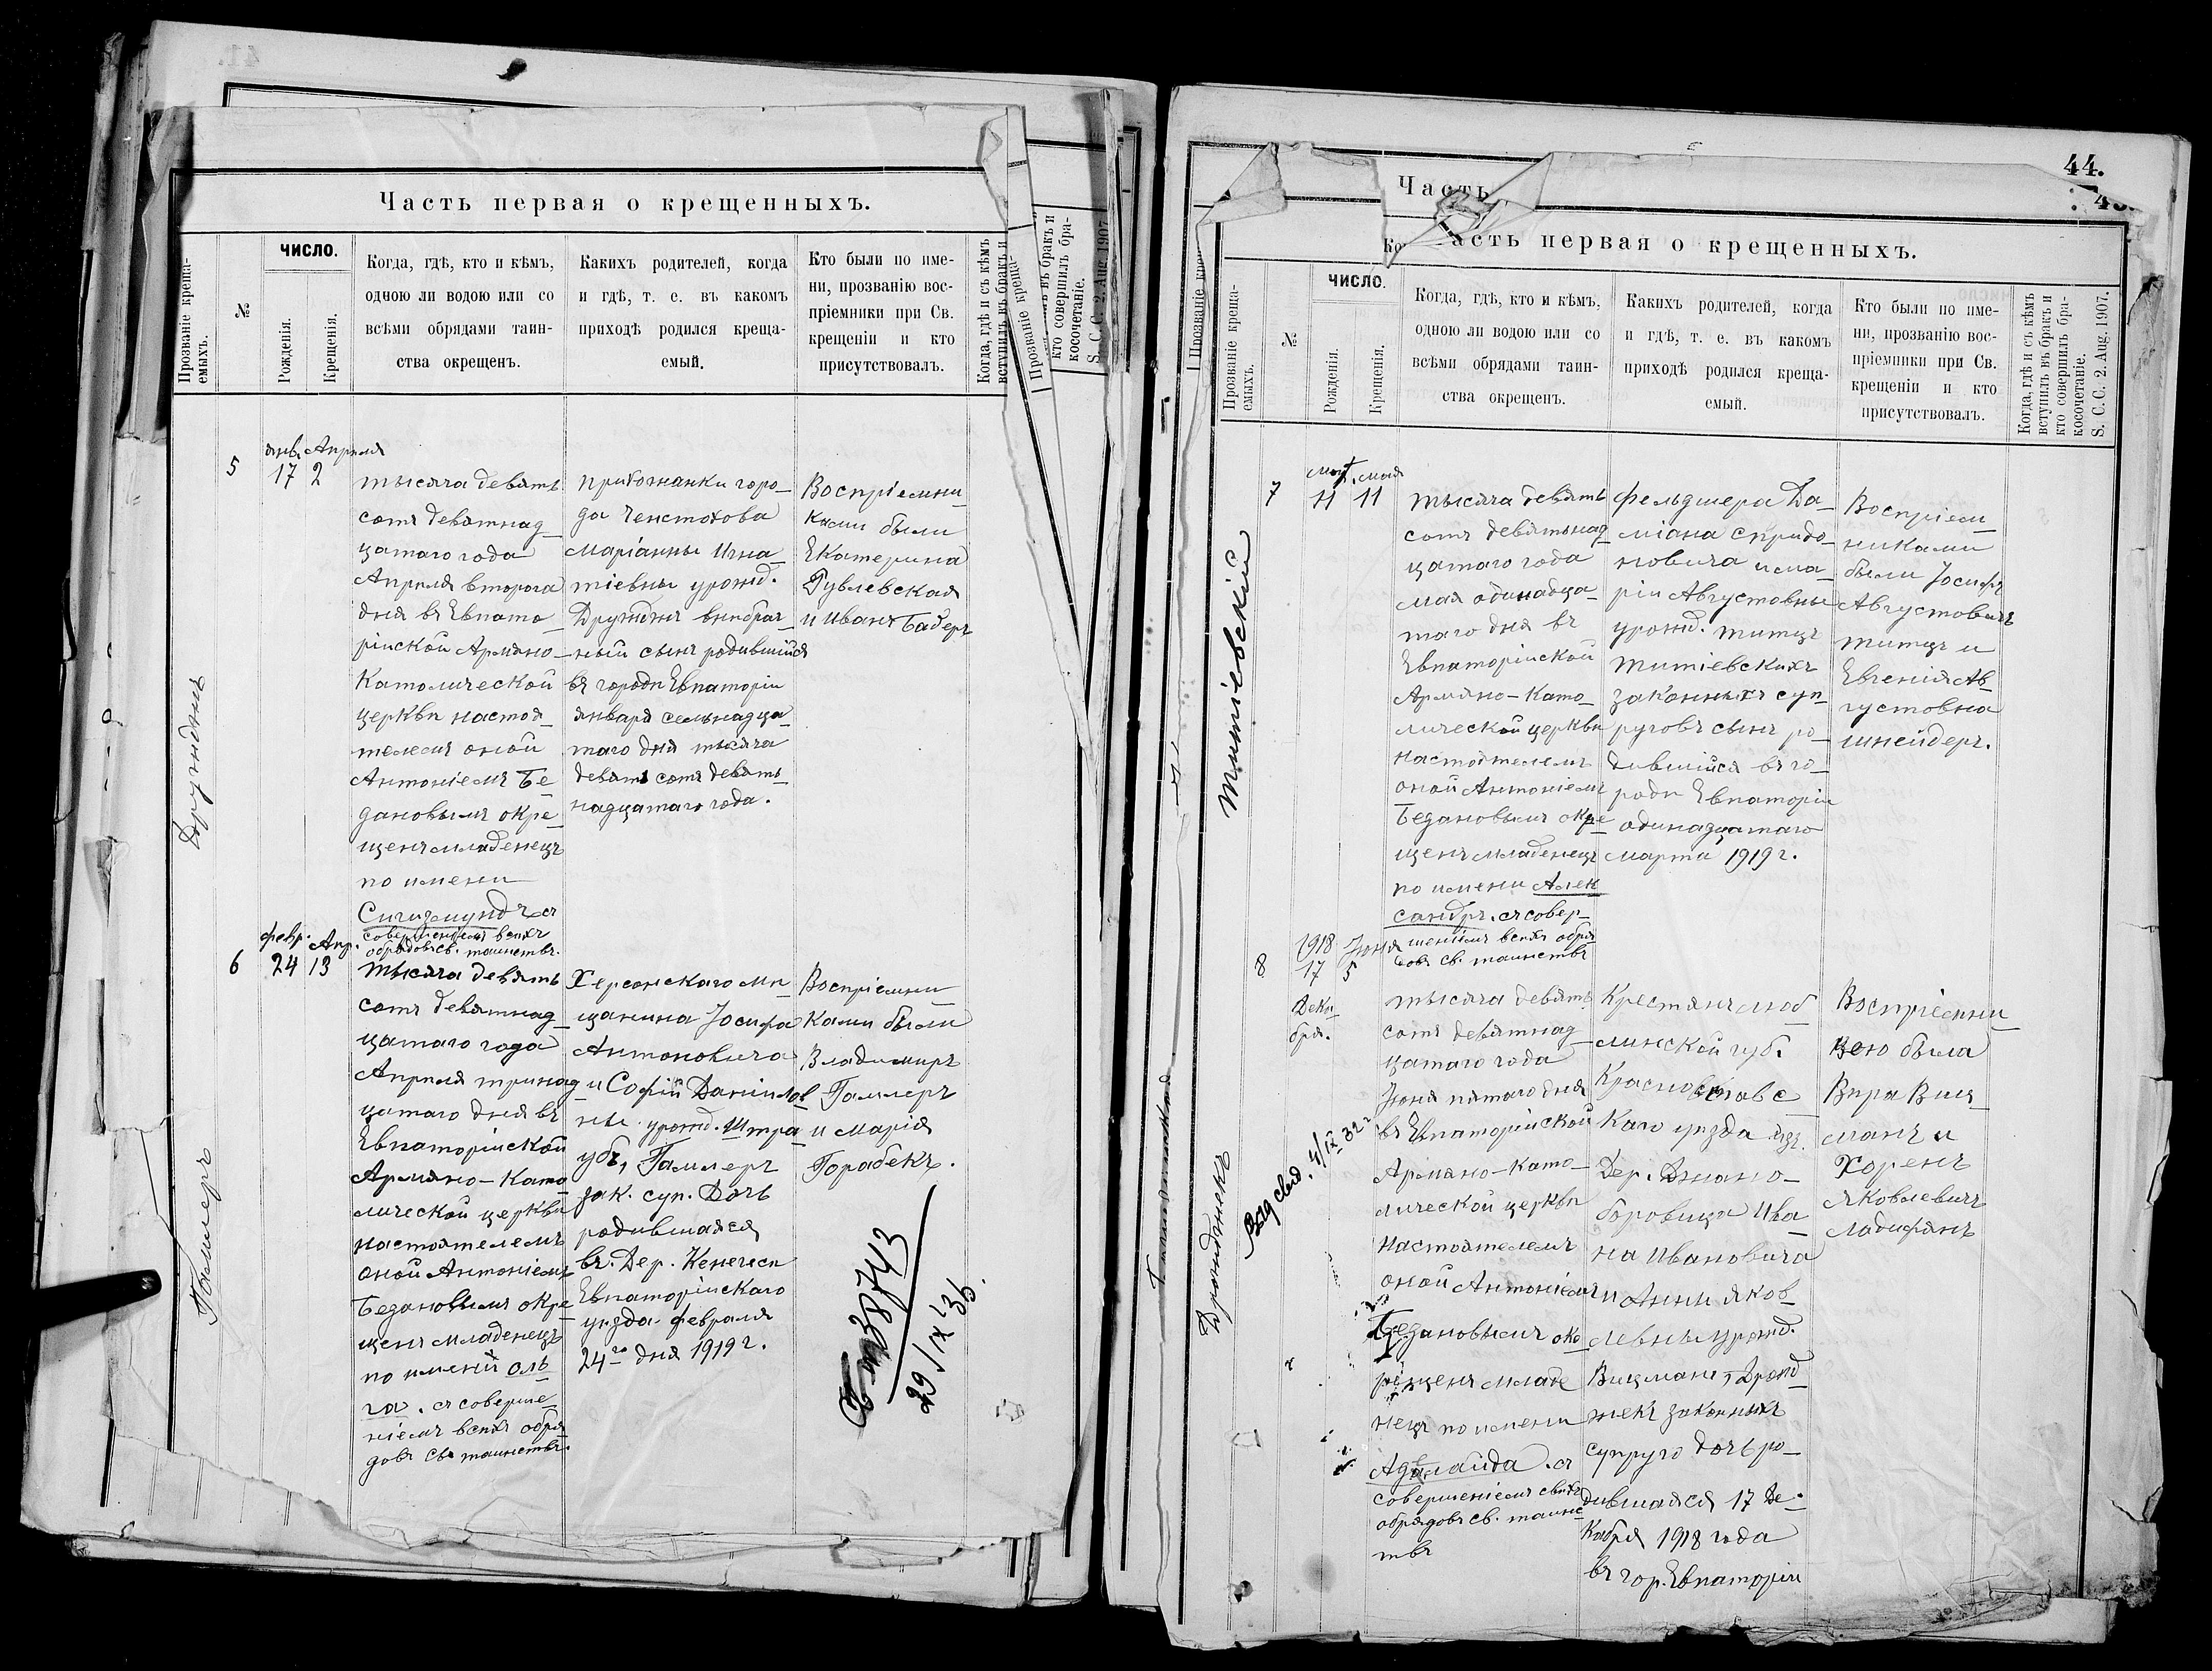 41.
Часть первая о крещенныхъ.
Прозваніе креща-
емыхъ.
№
ЧИСЛО.
Рожденія.
Крещенія.
Когда, гдѣ, кто и кѣмъ,
одною ли водою или со
всѣми обрядами таин-
ства окрещенъ.
Какихъ родителей, когда
и гдѣ, т. е. въ какомъ
приходѣ родился креща-
емый.
Кто были по име-
ни, прозванію вос-
пріемники при Св.
крещеніи и кто
присутствовалъ.
Когда, гдѣ и съ кѣмъ
вступилъ въ бракъ и
Прозваніе креща-
въ бракъ и
кто совершилъ бра-
косочетаніе.
S. C. C. 2. Aug. 1907
Дружднъ
5
янв. Апрѣля
17 2
тысяча девять
сотъ девятнад
цатаго года
Апрѣля второго
дня въ Евпато
рійской Армяно-
Католической
церкви настоя
телемъ оной
Антоніемъ Бе
дановымъ окре
щенъ младенецъ
по имени
Сигизмундъ съ
совершеніемъ всѣхъ
обрядовъ св. таинствъ.
горо
да Ченстохова
Маріанны Игна
тіевны урожд.
Дружднъ внѣбрач
ный сынъ родившійся
въ городѣ Евпаторіи
января семьнадца
таго дня тысяча
девять сотъ девять
надцатаго года.
Воспріемни
ками были
Екатерина
Дублевская
и Иванъ Бадеръ
Гаммеръ
6
февр. Апр.
24 13
тысяча девять
сотъ девятнад
цатаго года
Апрѣля тринад
цатаго дня въ
Евпаторійской
Армяно-Като
лической церкви
настоятелемъ
оной Антоніемъ
Бедановымъ окре
щенъ младенецъ
по имени Оль
га. съ соверше
ніемъ всѣхъ обря
довъ св. таинствъ.
Херсонскаго мѣ
щанина Іосифа
Антоновича
и Софіи Данилов
ны урожд. Штра
убъ, Гаммеръ
зак. суп. дочь
родившаяся
въ дер. Кенегезѣ
Евпаторійскаго
уѣзда февраля
24го дня 1919 г.
Воспріемни
ками были
Владимиръ
Гаммеръ
и Марія
Горабекъ.
38743
29/IX 36.
44.
Часть
Прозваніе
Часть первая о крещенныхъ.
Прозваніе креща-
емыхъ.
№
ЧИСЛО.
Рожденія.
Крещенія.
Когда, гдѣ, кто и кѣмъ,
одною ли водою или со
всѣми обрядами таин-
ства окрещенъ.
Какихъ родителей, когда
и гдѣ, т. е. въ какомъ
приходѣ родился креща-
емый.
Кто были по име-
ни, прозванію вос-
пріемники при Св.
крещеніи и кто
присутствовалъ.
Когда, гдѣ и съ кѣмъ
вступилъ въ бракъ и
кто совершилъ бра-
косочетаніе.
S. C. C. 2. Aug. 1907.
Титіевскій
7
март. мая
11 11
тысяча девять
сотъ девятьнад
цатаго года
мая одинадца
таго дня въ
Евпаторійской
Армяно-Като
лической церкви
настоятелемъ
оной Антоніемъ
Бедановымъ окре
щенъ младенецъ
по имени Алек
сандръ. съ совер
шеніемъ всѣхъ обря
довъ св. таинствъ
фельдшера Да
міана Спридо
новича и Ма
ріи Августовны
урожд. Титцъ
Титіевскихъ
законныхъ суп
руговъ сынъ ро
дившійся въ го
родѣ Евпаторіи
одинадцатаго
марта 1919 г.
Воспріем
никами
были Іосифъ
Августовичъ
Титцъ и
Евгенія Ав
густовна
Шнейдеръ.
8
1918
17
Дека
бря.
Іюня
5
Выд свид. 4/IX 32 г
тысяча девять
сотъ девятнад
цатаго года
Іюня пятаго дня
въ Евпаторійской
Армяно-Като
лической церкви
настоятелемъ
оной Антоніемъ
Бедановымъ ок
рещенъ младе
нецъ по имени
Аделаида. съ
совершеніемъ всѣхъ
обрядовъ св. таинс
твъ
Крестянъ Люб
линской губ.
Красноставс
каго уѣзда изъ
дер.
Ива
на Ивановича
и Анны Яков
левны урожд.
Вицманъ, Дронд
жекъ законныхъ
супруго дочь ро
дившаяся 17 Де
кабря 1918 года
въ гор. Евпаторіи
Воспріемни
цею была
Вѣра Виц
манъ и
Хоренъ
Яковлевичъ